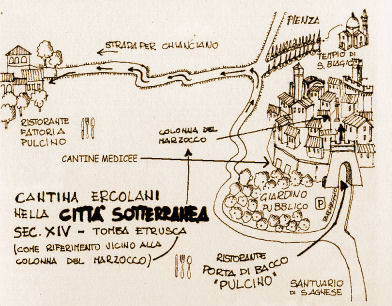 PIENZA
STRADA PER CHIANCIANO
TEMPIO DI
S. BIAGIO
RISTORANTE
FATTORIA
PULCINO
COLONNA DEL
MARZOCCO
CANTINE MEDICEE
CANTINA ERCOLANI
NELLA CITTA' SOTTERRANEA
SEC. XIV - TOMBA ETRUSCA
(COME RIFERIMENTO VICINO ALLA
COLONNA DEL MARZOCCO)
GIARDINO
PUBBLICO
P
RISTORANTE
PORTA DI BACCO
"PULCINO"
SANTUARIO
DI S. AGNESE